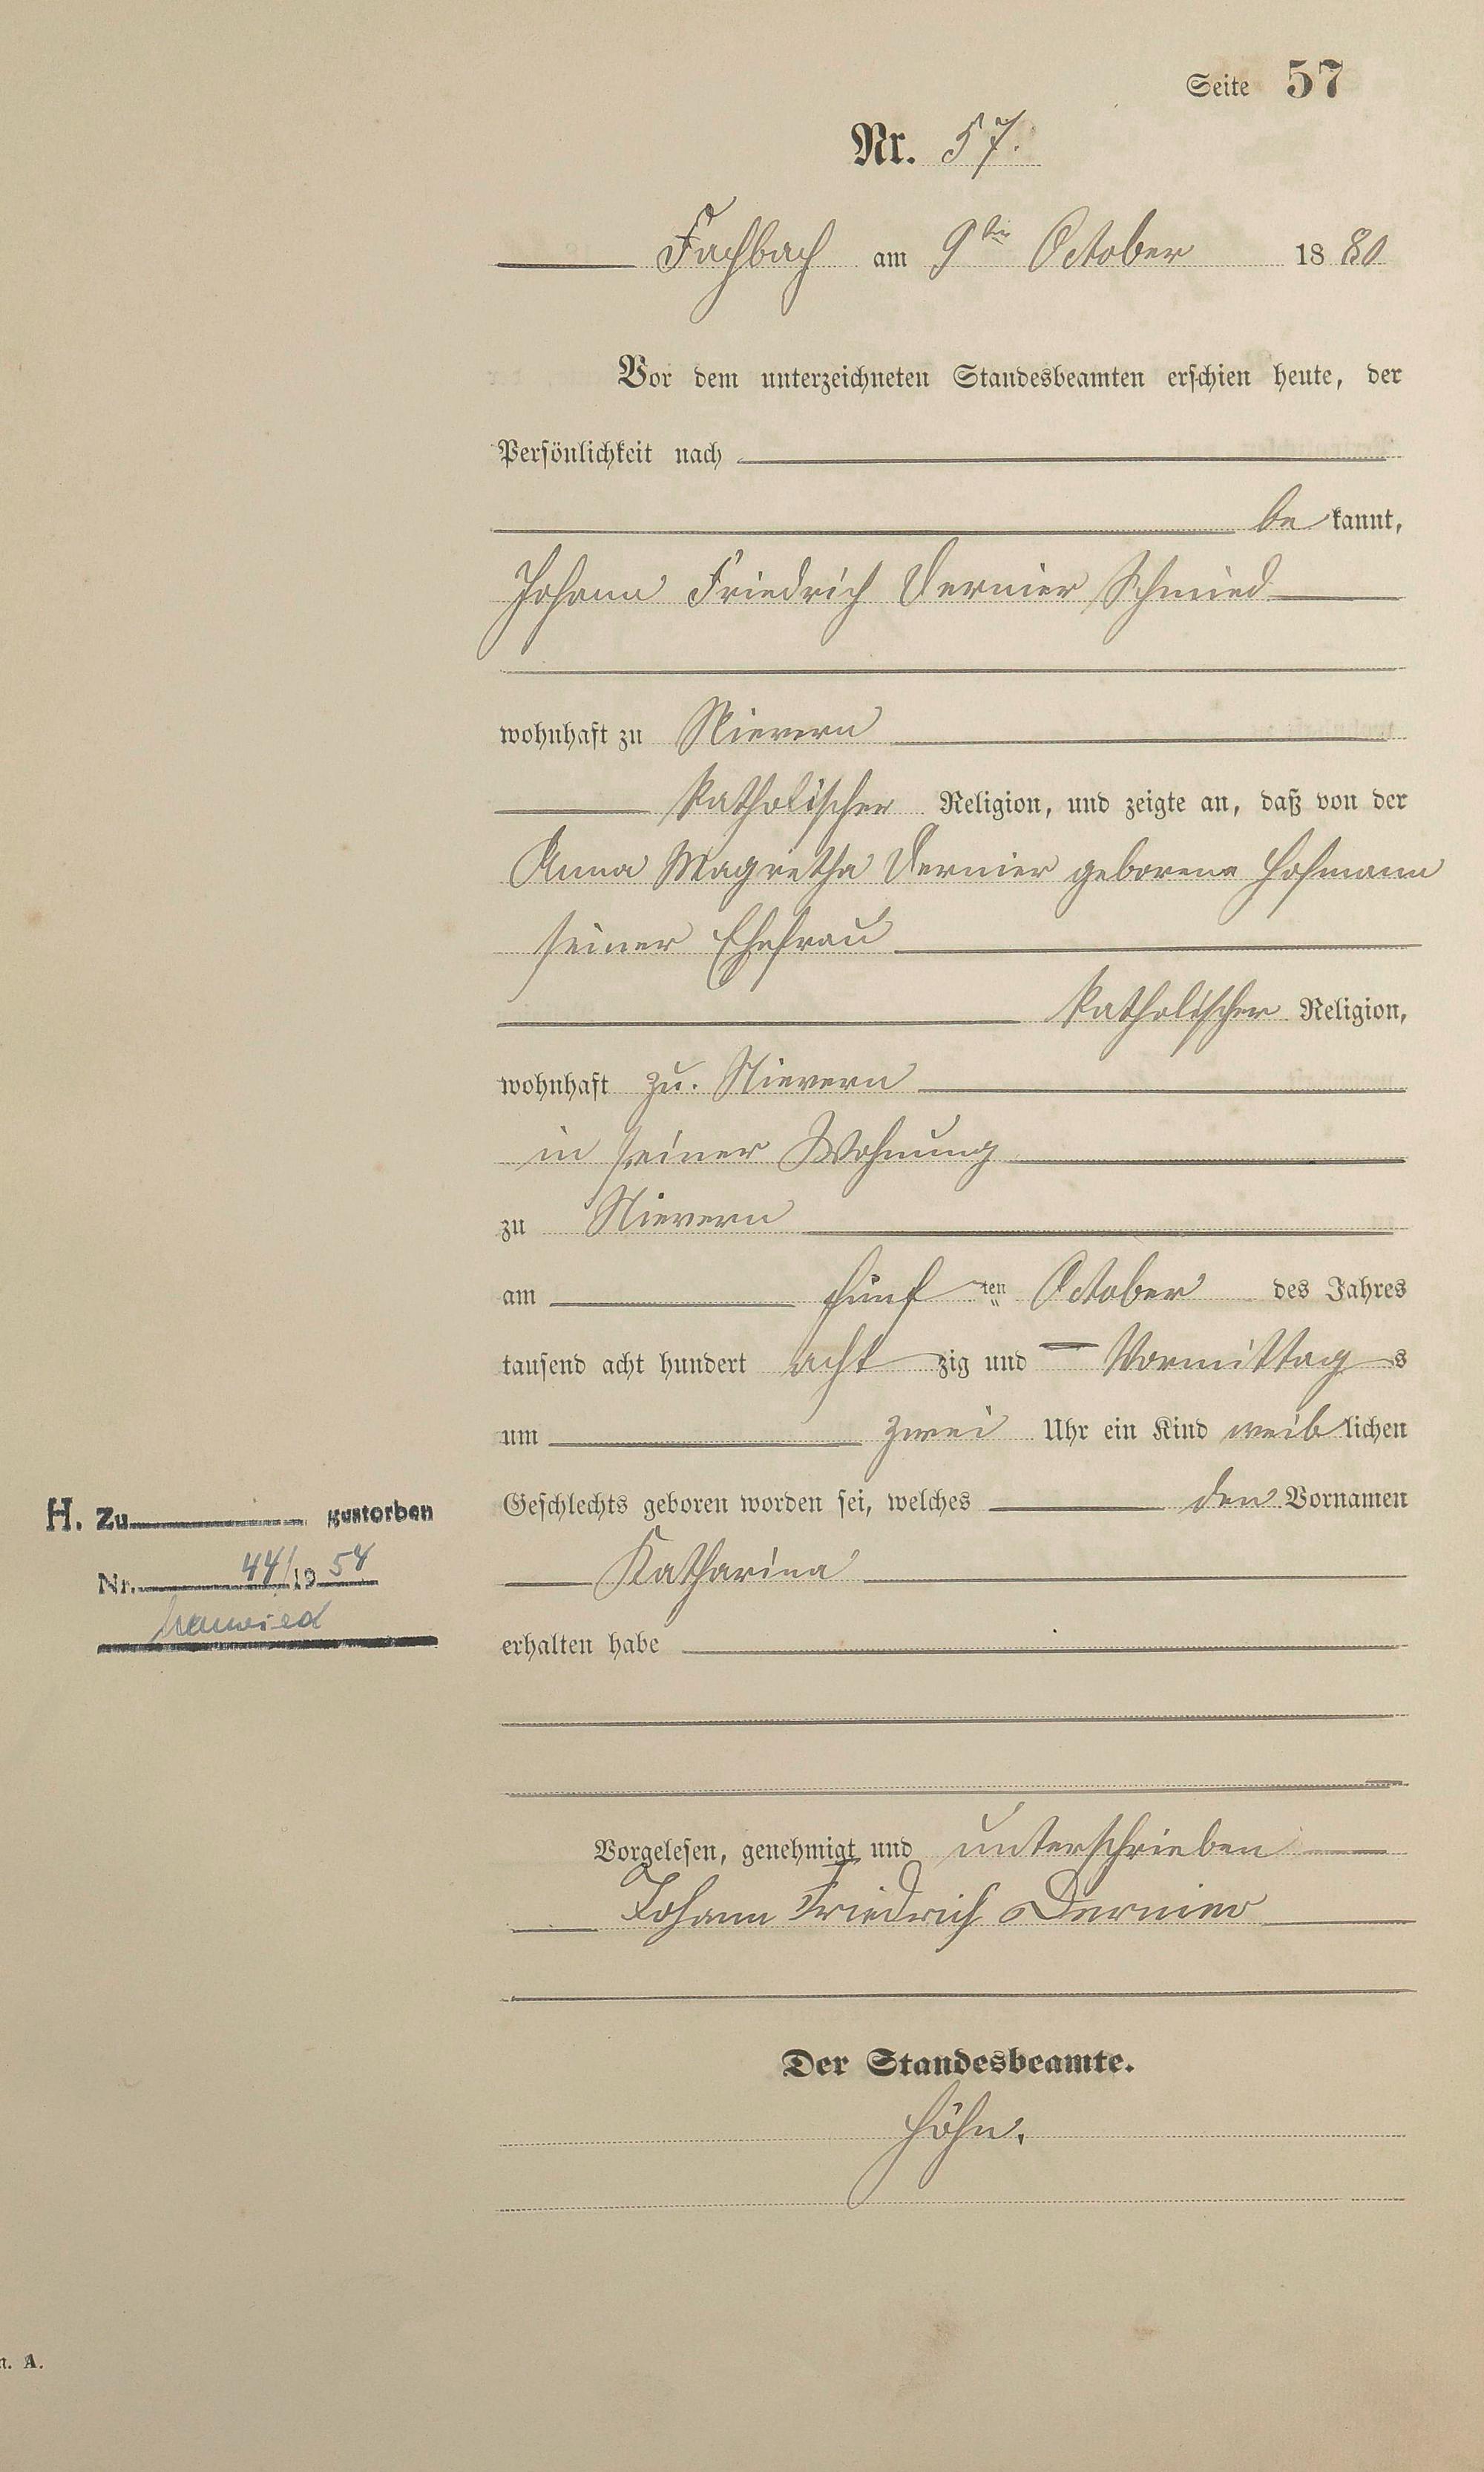 Seite 57
Nr. 57.
Fachbach am 9ten October 1880
Vor dem unterzeichneten Standesbeamten erschien heute, der
Persönlichkeit nach
bekannt,
Johann Friedrich Dernier Schmied
wohnhaft zu Nievern
katholischer Religion, und zeigte an, daß von der
Anna Magretha Dernier geborene Hofmann
seiner Ehefrau
katholischer Religion,
wohnhaft zu. Nievern
in seiner Wohnung
zu Nievern
am fünften October des Jahres
tausend acht hundert achtzig und Vormittags
um zwei Uhr ein Kind weiblichen
Geschlechts geboren worden sei, welches den Vornamen
Katharina
erhalten habe
H. Zu gestorben
Nr. 44/1958
Neuwied
Vorgelesen, genehmigt und unterschrieben
Johann Friedrich Dernier
Der Standesbeamte.
Höhn.
t. A.